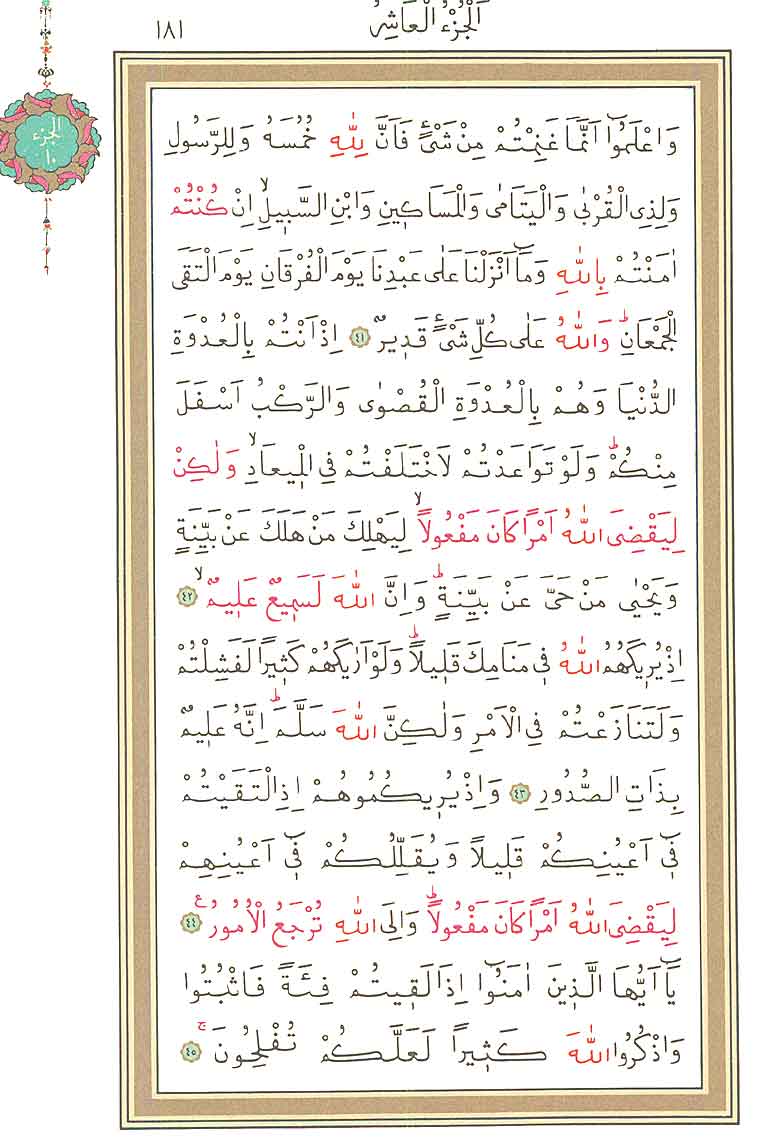 اَلْجُزْءُ الْعَاشِرُ
١٨١
الجزء
١٠
وَاعْلَمُٓوا اَنَّمَا غَنِمْتُمْ مِنْ شَيْءٍ فَاَنَّ لِلّٰهِ خُمُسَهُ وَلِلرَّسُولِ
وَلِذِي الْقُرْبٰى وَالْيَتَامٰى وَالْمَسَاك۪ينِ وَابْنِ السَّب۪يلِۙ اِنْ كُنْتُمْ
اٰمَنْتُمْ بِاللّٰهِ وَمَٓا اَنْزَلْنَا عَلٰى عَبْدِنَا يَوْمَ الْفُرْقَانِ يَوْمَ الْتَقَى
الْجَمْعَانِۜ وَاللّٰهُ عَلٰى كُلِّ شَيْءٍ قَد۪يرٌ ٤١ اِذْ اَنْتُمْ بِالْعُدْوَةِ
الدُّنْيَا وَهُمْ بِالْعُدْوَةِ الْقُصْوٰى وَالرَّكْبُ اَسْفَلَ
مِنْكُمْۜ وَلَوْ تَوَاعَدْتُمْ لَاخْتَلَفْتُمْ فِي الْم۪يعَادِۙ وَلٰكِنْ
لِيَقْضِيَ اللّٰهُ اَمْرًا كَانَ مَفْعُولًاۙ لِيَهْلِكَ مَنْ هَلَكَ عَنْ بَيِّنَةٍ
وَيَحْيٰى مَنْ حَيَّ عَنْ بَيِّنَةٍۜ وَاِنَّ اللّٰهَ لَسَم۪يعٌ عَل۪يمٌۙ ٤٢
اِذْ يُر۪يكَهُمُ اللّٰهُ ف۪ي مَنَامِكَ قَل۪يلًاۜ وَلَوْ اَرٰيكَهُمْ كَث۪يرًا لَفَشِلْتُمْ
وَلَتَنَازَعْتُمْ فِي الْاَمْرِ وَلٰكِنَّ اللّٰهَ سَلَّمَۜ اِنَّهُ عَل۪يمٌ
بِذَاتِ الصُّدُورِ ٤٣ وَاِذْ يُر۪يكُمُوهُمْ اِذِ الْتَقَيْتُمْ
ف۪ٓي اَعْيُنِكُمْ قَل۪يلًا وَيُقَلِّلُكُمْ ف۪ٓي اَعْيُنِهِمْ
لِيَقْضِيَ اللّٰهُ اَمْرًا كَانَ مَفْعُولًاۜ وَاِلَى اللّٰهِ تُرْجَعُ الْاُمُورُ۟ ٤٤
يَٓا اَيُّهَا الَّذ۪ينَ اٰمَنُٓوا اِذَا لَق۪يتُمْ فِئَةً فَاثْبُتُوا
وَاذْكُرُوا اللّٰهَ كَث۪يرًا لَعَلَّكُمْ تُفْلِحُونَۚ ٤٥